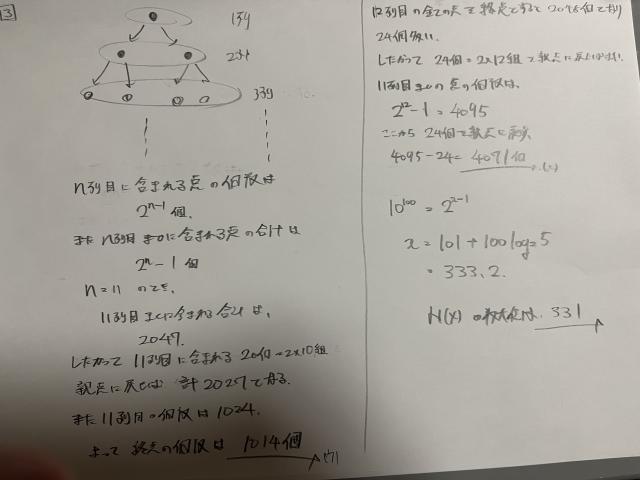 3
1列
2列
3列
n列目に含まれる点の個数は
2^{n-1} 個.
また n列目までに含まれる点の合計は
2^n - 1 個
n = 11 のとき,
11列目までに含まれる合計は,
2047.
したがって 11列目に含まれる 20個 = 2×10組
親点に戻せば 計2027となる.
また11列目の個数は1024.
よって 終点の個数は 1014個
12列目の全ての点を終点とすると 2048個であり
24個多い.
したがって 24個 = 2×12組を親点に戻せばよい.
11列までの点の個数は,
2^{12} - 1 = 4095
ここから 24個を
4095 - 24 = 4071個
10^{100} = 2^{x-1}
x = 101 + 100 log_2 5
= 333.2.
H(x) の 331